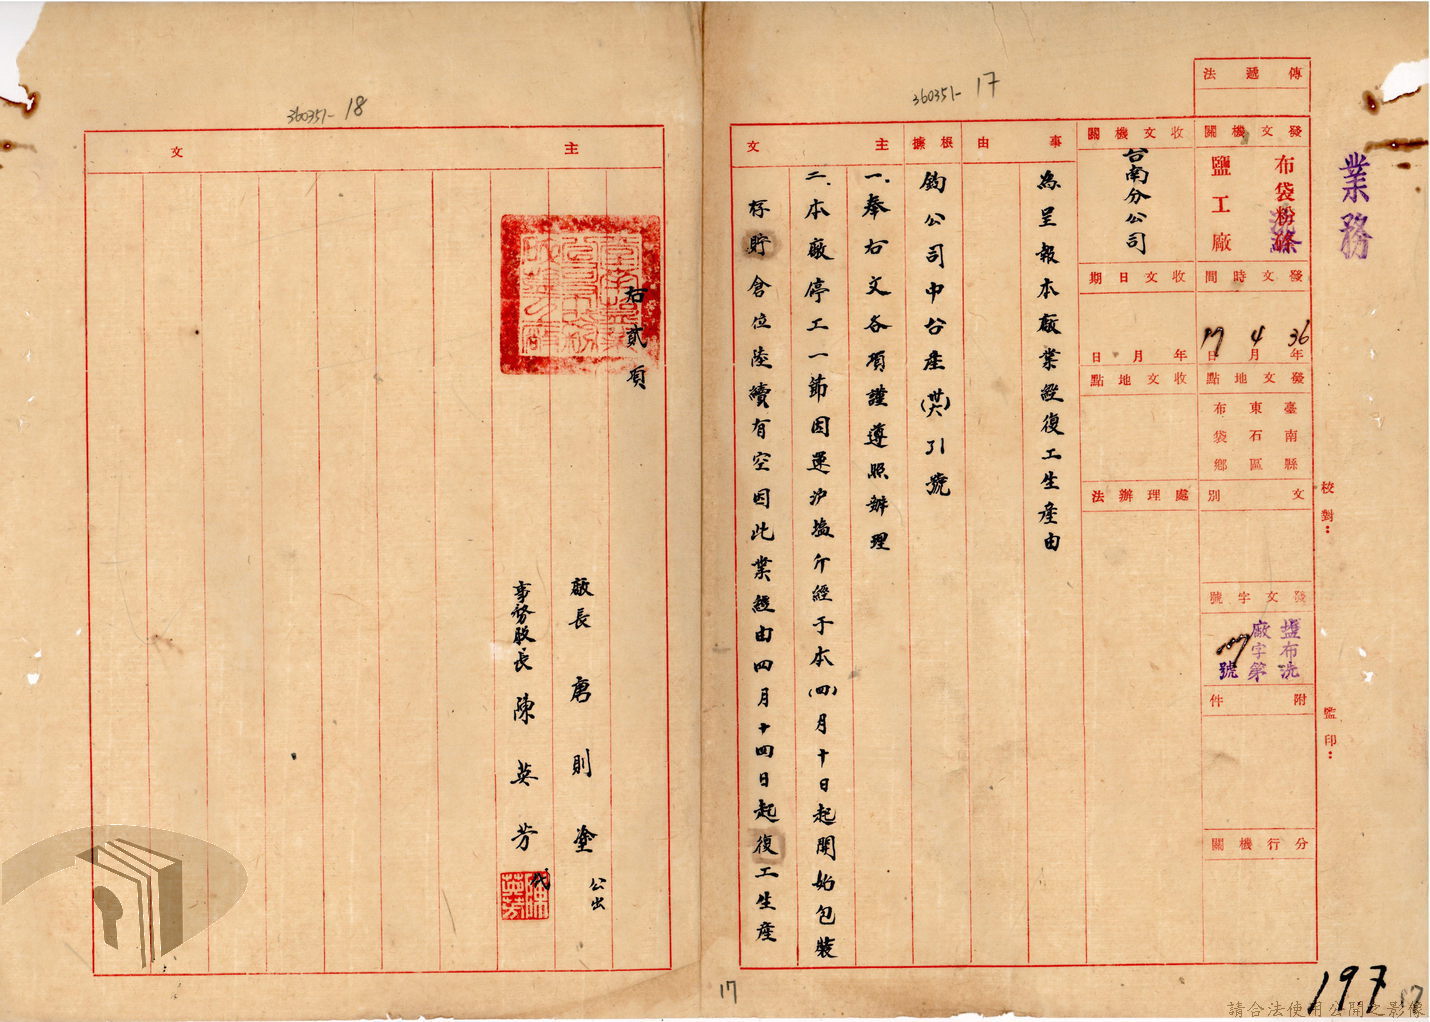 業務
校對：
監印：
傳遞法
發文機關
布袋粉
鹽工廠
發文時間
36年4月17日
發文地點
臺南縣
東石區
布袋鄉
文別
發文字號
鹽布洗
廠字第
號
附件
分行機關
收文機關
台南分公司
收文日期
年月日
收文地點
處理辦法
事由
為呈報本廠業經復工生產由
根據
鈞公司中台產(卅六)引號
主文
一.奉右文各項謹遵照辦理
二.本廠停工一節因運滬塩斤經于本(四)月十日起開始包裝
存貯倉位陸續有空因此業經由四月十四日起復工生產
360351-17
17
197
17
360351-18
主文
右貳項
廠長唐則塗
公出
事務股長陳英芳
代
陳英芳
請合法使用公開之影像